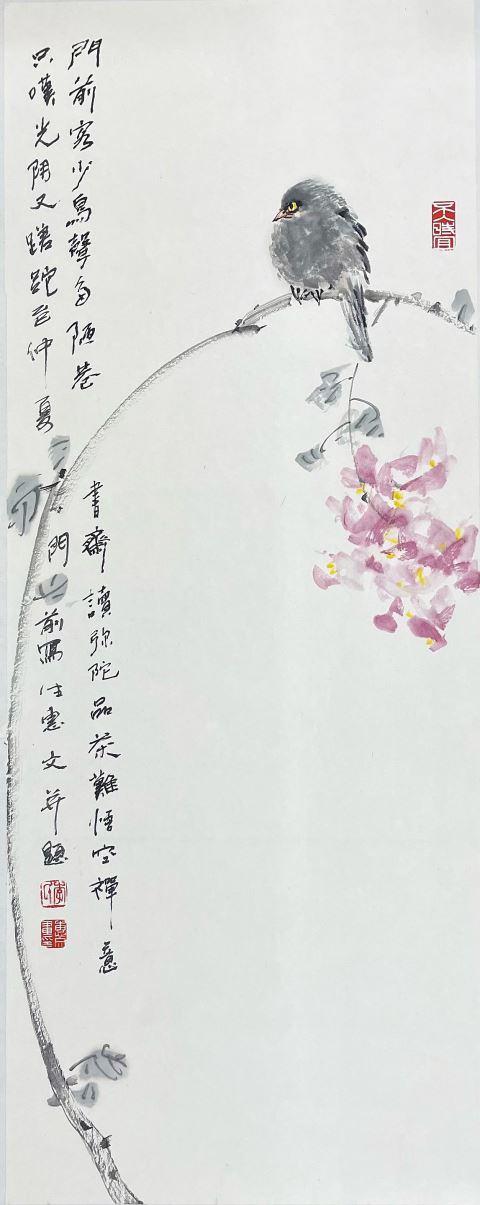 門前客少鳥聲多陋巷
書齋讀弥陀品茶難悟空禪意
只嘆光阴又蹉跎仲夏
門前寫惠文并題